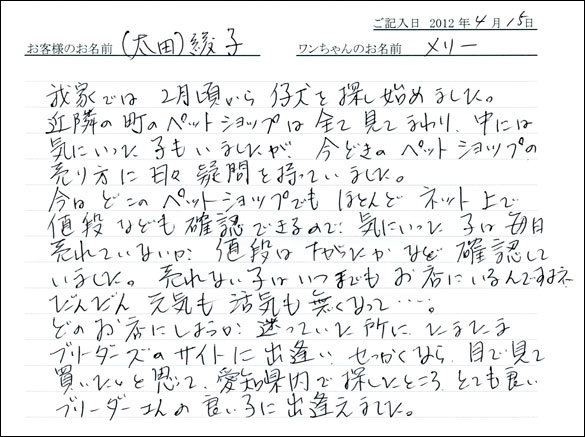 ご記入日 2012年4月15日
お客様のお名前 (太田)綾子 ワンちゃんのお名前 メリー
我家では 2月頃から 仔犬を探し始めました。
近隣の町のペットショップは全て見てまわり、中には
気にいった子もいましたが、今どきのペットショップの
売り方に日々疑問を持っていました。
今はどこのペットショップでもほとんどネット上で
値段なども確認できるので、気にいった子は毎日
売れていないか、値段は下がったかなど確認して
いました。売れない子はいつまでもお店にいるんですよネ
だんだん元気も活気も無くなって・・・・。
どのお店にしようか、迷っていた所に、たまたま
ブリーダーズのサイトに出逢い、せっかくなら、目で見て
買いたいと思って、愛知県内で探したところ、とても良い
ブリーダーさんの良い子に出逢えました。